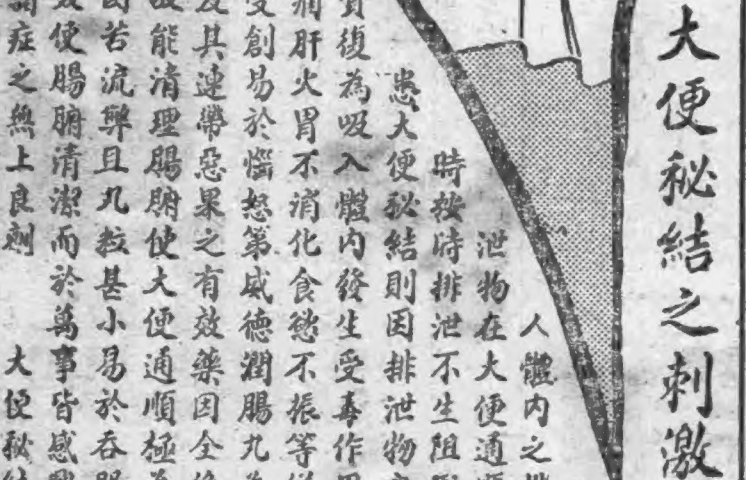 大便秘結之刺激
人體內之
泄物在大便通
時按時排泄不生阻
患大便秘結則因排泄物
復為吸入體內發生受毒作
肝火胃不消化食慾不振等
受創易於惱怒第威德潤腸丸
及其連帶惡果之有效藥因全
能清理腸腑使大便通順極
苦流弊且丸粒甚小易於吞
便腸腑清潔而於萬事皆感
症之無上良劑 大便秘結